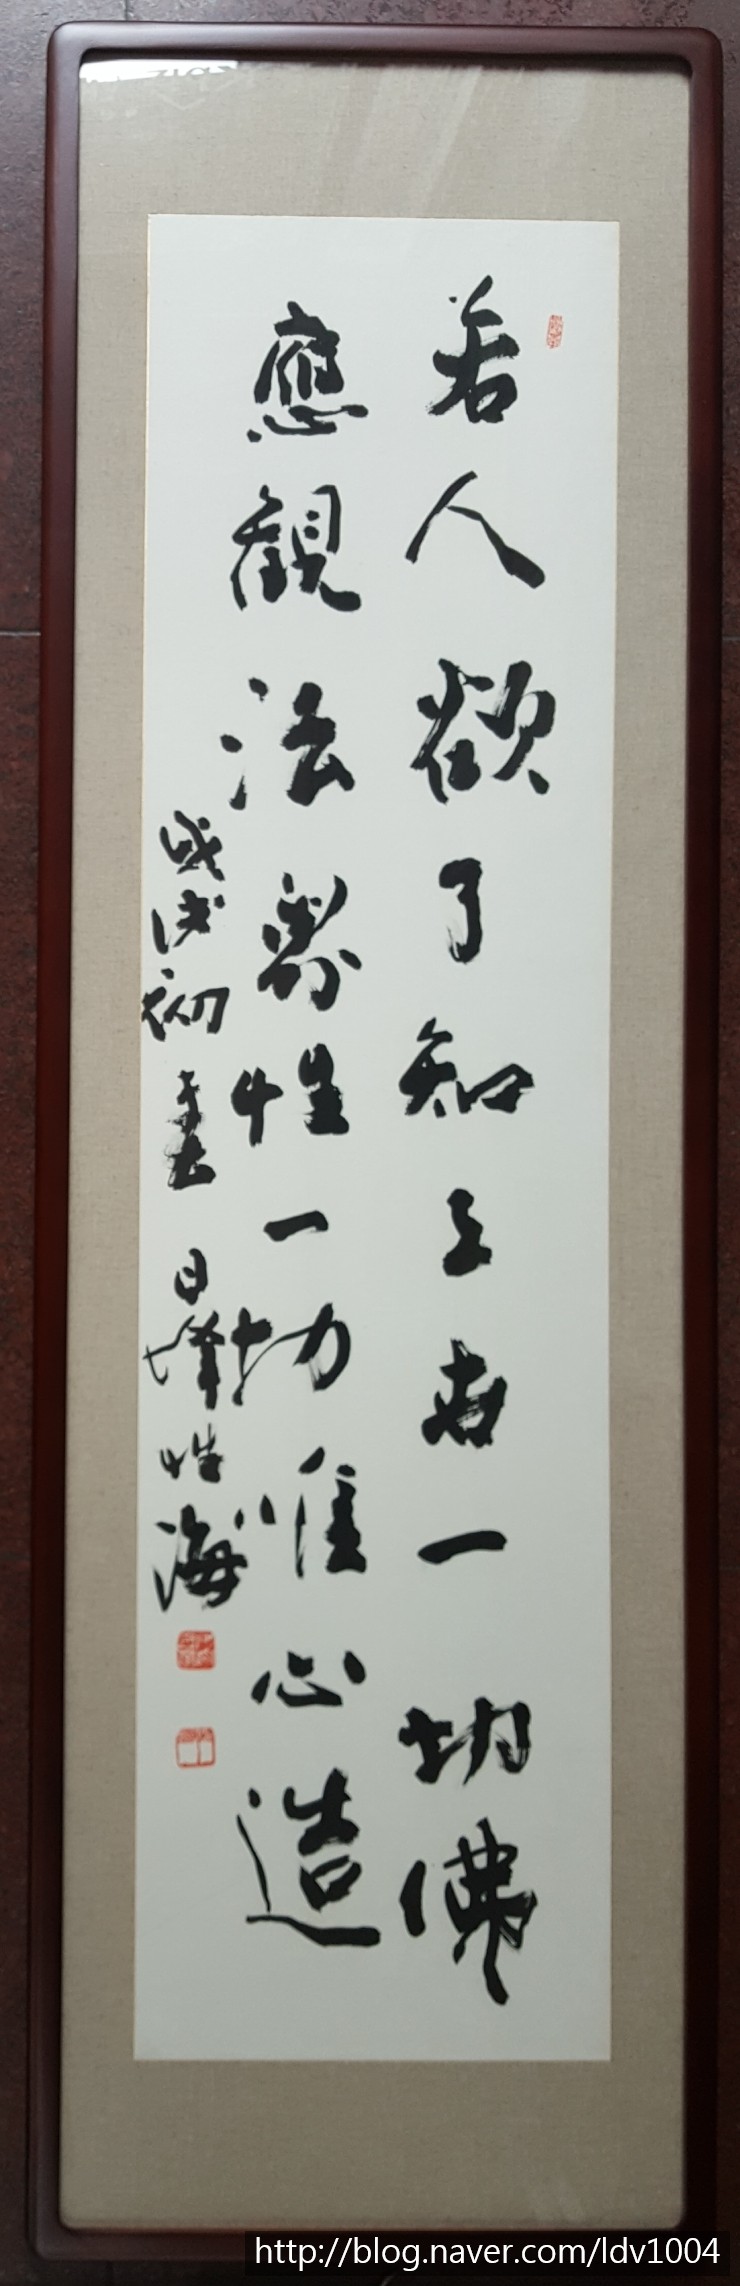 若人欲了知三世一切佛
應觀法界性一切唯心造
戊戌初 日峰性海
http://blog.naver.com/ldv1004